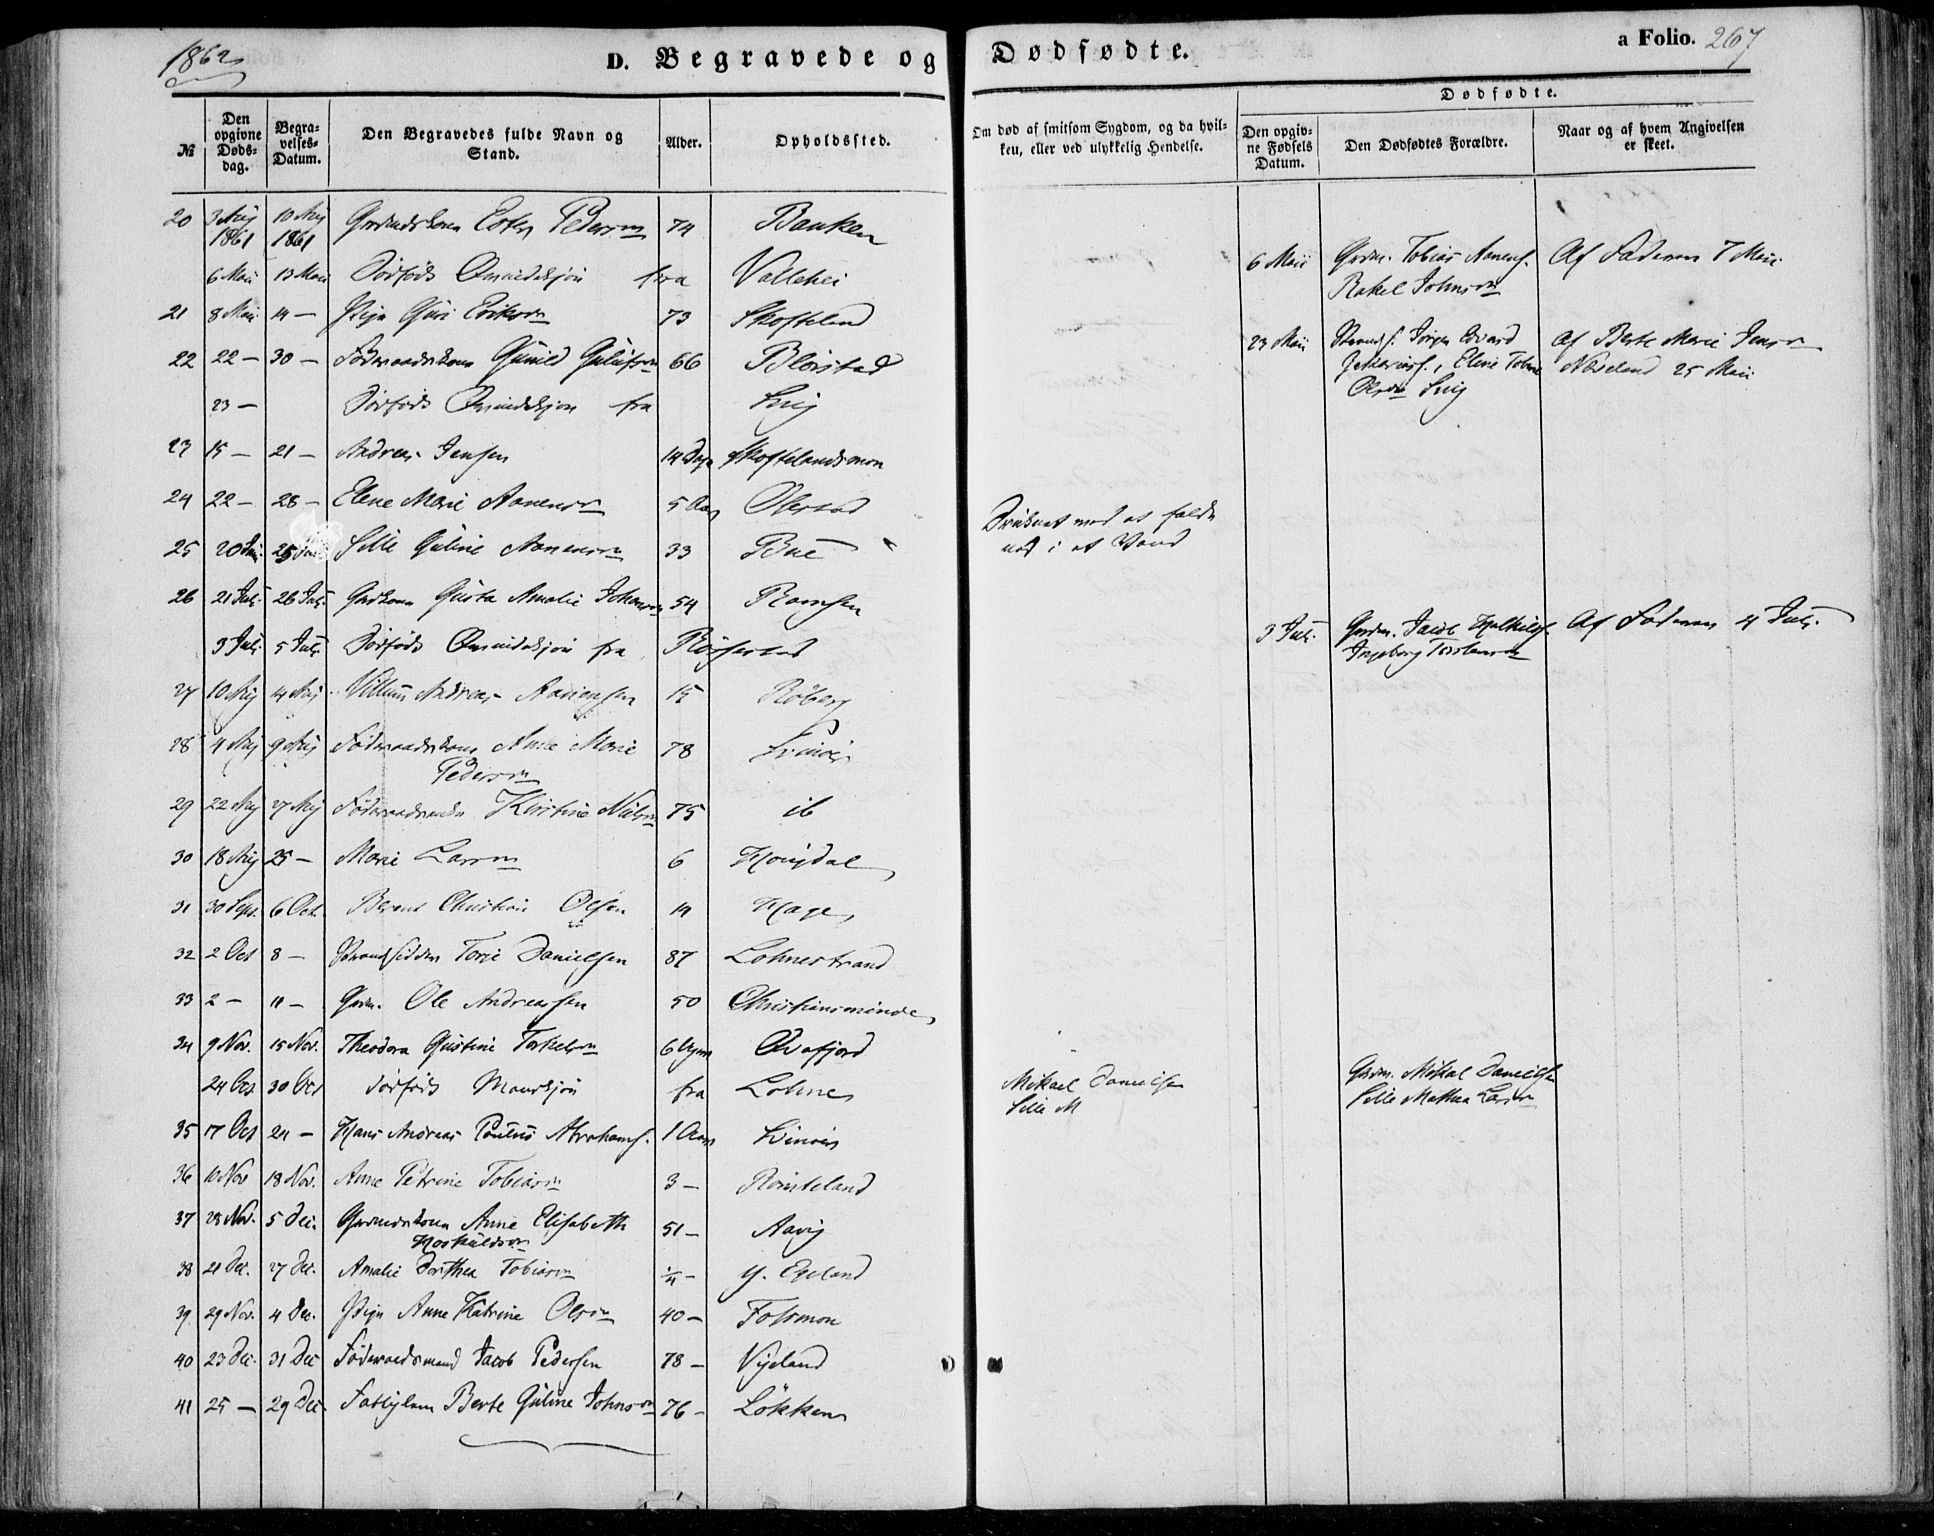 1862
D. Begravede og Dødfødte.
a Folio. 267
№
Den opgivne Døds-dag.
Begra-velses-Datum.
Den Begravedes fulde Navn og Stand.
Alder.
Opholdssted.
Om død af smitsom Sygdom, og da hvil-ken, eller ved ulykkelig Hendelse.
Dødfødte.
Den opgiv-ne Fødsels Datum.
Den Dødfødtes Forældre.
Naar og af hvem Angivelsen er skeet.
20 3 Maj 1861 10 Maj 1861 Pedersen 74 Banken
6 Maii 13 Maii Dødfødt Qvindekjøn fra Vallehei 6 Maii Grdm. Tobias Aanens. Rakel Johnsen Af Faderen 7 Maii
21 8 Maii 14 — Pige Guri Eriksen 73 Skofteland
22 22 — 30 — Føderaadskone Gunild 66 Bleirstad
23 — Dødfødt Qvindekjøn fra Svig 23 Maii Strands. Jørgen Edvard Zakariass., Elene Tobine Olsen Svig Af Berte Marie Jensen 25 Maii
23 15 — 21 — Andreas Jensen 14 Dage Skoftelandsmoen
24 22 — 28 — Elene Marie Aanensen 5 Aar Ølestad Druknet med at falde ned i et Vand
25 20 25 Sille Guline Aanensen 33 Bue
26 21 Jul. 26 Jul. Grdkone Gusta Amalie Johansen 54 Romsen
3 Jul. 5 Jul. Dødfødt Qvindekjøn fra Røiserstad 3 Jul. Grdm. Jacob Ingeborg Torstensen Af Faderen 4 Jul.
27 10 Aug 14 Aug Villum Andreas Aanensen 15 Røberg
28 4 Aug 9 Aug Føderaadskone Anne Marie Pedersen 78
29 22 Aug 27 Aug Kirstine Nielsen 75 ib
30 18 Aug 25 — Marie Larsen 6 Hougdal
31 30 Sept. 6 Oct. Berent Christian Olsen 14 Hage
32 2 Oct 8 — Strandsidder Torje Danielsen 87 Lohnestrand
33 2 — 11 — Grdm. Ole Andreassen 50 Christiansminde
34 9 Nov. 15 Nov. Theodora Gustine Torkelsen 6 Ugers Qvafjord
24 Oct 30 Oct Dødfødt Mandkjøn fra Lohne Mikael Danielsen Sille M Grdm. Mikal Danielsen Sille Mathea Larsen
35 17 Oct 24 — Hans Andreas Paulus Abrahams. 1 Aars
36 10 Nov 18 Nov. Anne Petrine Tobiasen 3 —
37 28 Nov. 5 Dec. Grdmdskone Anne Elisabeth 51 — Aavig
38 21 Dec. 27 Dec. Amalie Dorthea Tobiasen ¼ — Y. Egeland
39 29 Nov. 4 Dec. Pige Anne Katrine Olsen 40 — Fossmon
40 23 Dec. 31 Dec Føderaadsmand Jacob Pedersen 78 — Vigeland
41 25 — 29 Dec Fattiglem Berte Guline Johnsen 76 — Løkken